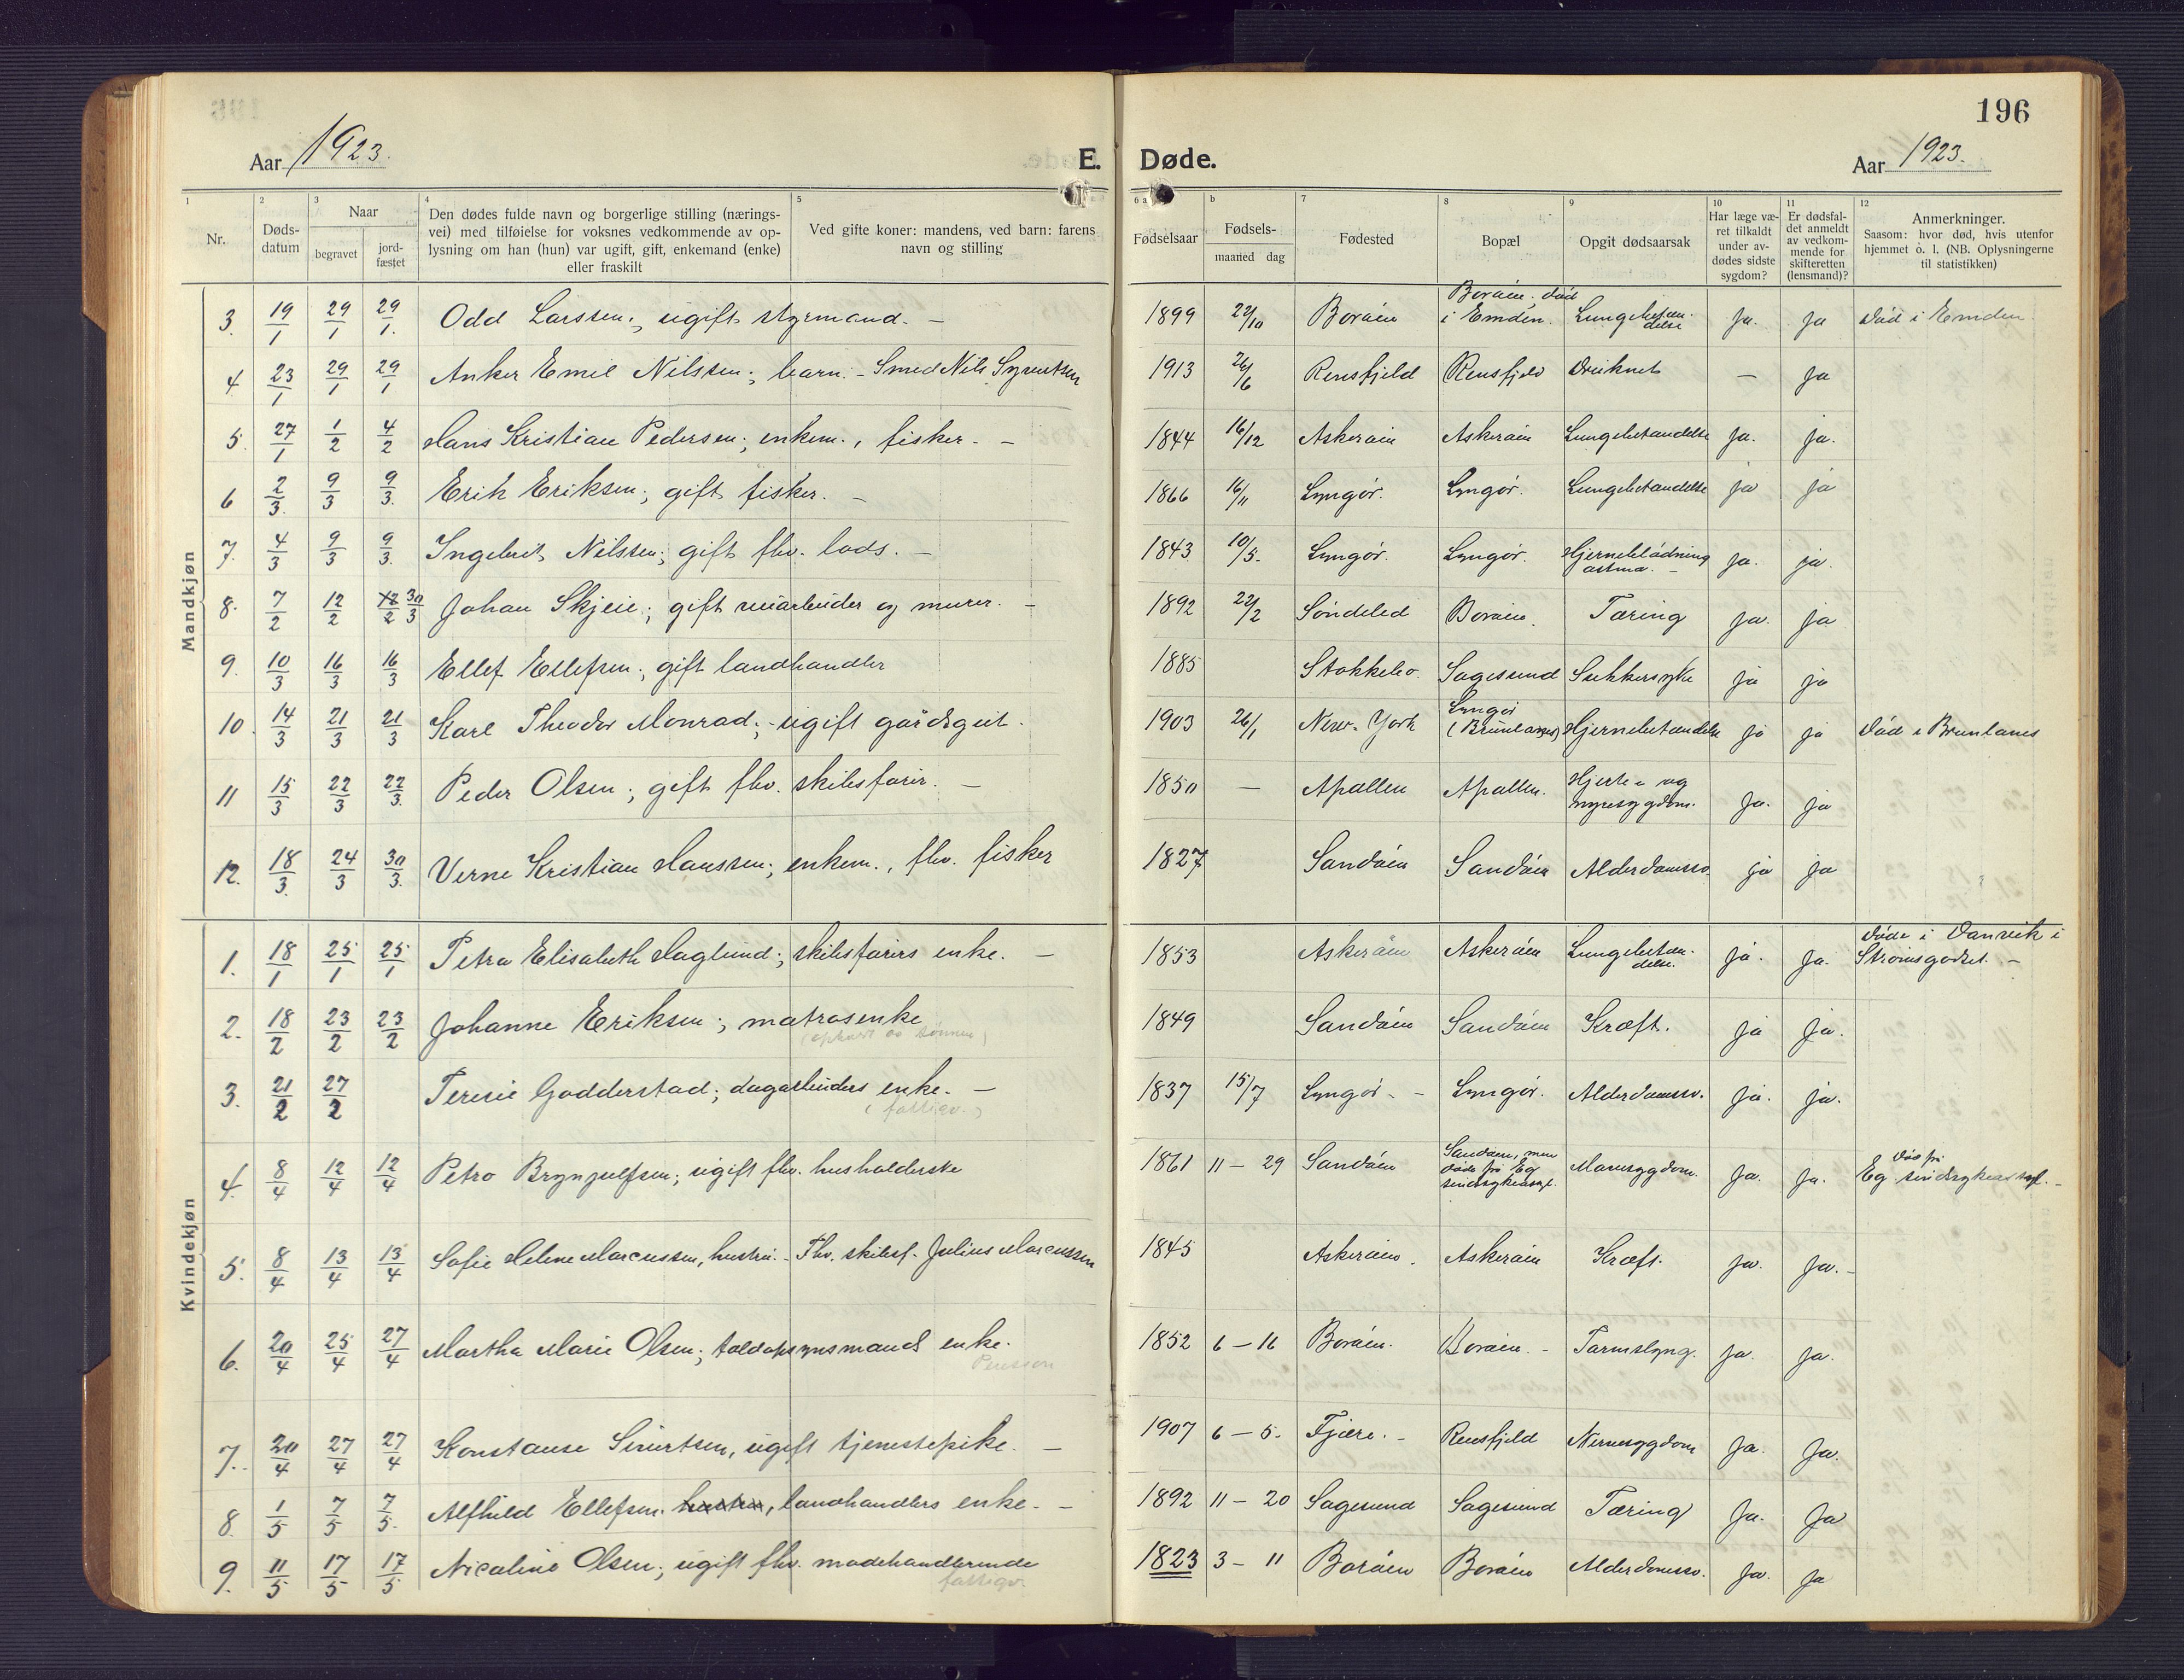 196
Aar 1923. E. Døde. Aar 1923.
1 2 3 4 5 6 a b 7 8 9 10 11 12
Nr.
Døds-
datum
Naar
begravet
jord-
fæstet
Den dødes fulde navn og borgerlige stilling (nærings-
vei) med tilføielse for voksnes vedkommende av op-
lysning om han (hun) var ugift, gift, enkemand (enke)
eller fraskilt
Ved gifte koner: mandens, ved barn: farens
navn og stilling
Fødselsaar
Fødsels-
maaned dag
Fødested
Bopæl
Opgit dødsaarsak
Har læge væ-
ret tilkaldt
under av-
dødes sidste
sygdom?
Er dødsfal-
det anmeldt
av vedkom-
mende for
skifteretten
(lensmand)?
Anmerkninger.
Saasom: hvor død, hvis utenfor
hjemmet o. l. (NB. Oplysningerne
til statistikken)
Mandkjøn
3. 19/1 29/1 29/1. Odd Larssen; ugift styrmand. — 1899 22/10 Borøen Borøen; død i Emden. Lungebetændelse Ja. ja Død i Emden.
4 23/1 29/1 29/1 Anker Emil Nilssen; barn. - Smed Nils Syvertsen 1913 26/6 Rensfjeld Rensfjeld Druknet — Ja
5 27/1 1/2 4/2 Hans Kristian Pedersen; enkem., fisker. — 1844 16/12 Askerøen Askerøen Lungebetændelse Ja. ja.
6 2/3. 9/3 9/3. Erik Eriksen; gift fisker. — 1866 16/11 Lyngør. Lyngør. Lungebetændelse ja ja
7. 4/3 9/3 9/3. Ingebret Nilssen; gift fhv. lods. — 1843 10/5. Lyngør. Lyngør. Hjerneblødning astma. — Ja. ja.
8. 7/2 12/2 12/2 30/3 Johan Skjeie; gift veiarbeider og murer. — 1892 22/2 Søndeled Borøen. Tæring Ja. ja
9. 10/3 16/3 16/3 Ellef Ellefsen; gift landhandler 1885 Stokkebo. Sagesund Sukkersyke ja ja
10. 14/3 21/3 21/3 Karl Theodor Monrad; ugift gårdsgut. 1903 26/1 New-York Lyngør (Brunlanes) Hjernebetændelse ja ja Død i Brunlanes
11 15/3 22/3 22/3. Peder Olsen; gift fhv. skibsfører. — 1850 — Apallen Apallen. Hjerte- og nyresygdom. Ja. ja
12. 18/3. 24/3 30/3. Verne Kristian Hanssen; enkem., fhv. fisker 1827 Sandøen Sandøen Alderdomssv. ja ja
Kvindekjøn
1. 18/1 25/1 25/1 Petra Elisabeth Haglund; skibsførers enke. — 1853 Askerøen Askerøen Lungebetændelse. Ja. Ja. Døde i Danvik i Strømsgodset. —
2. 18/2 23/2 23/2 Johanne Eriksen; matrosenke 1849 Sandøen Sandøen Kræft. ja Ja.
3. 21/2 27/2 Teresie Godderstad; dagarbeiders enke. — (fattigv.) 1837 15/7 Lyngør. — Lyngør. Alderdomssv. Ja. ja.
4. 8/4 12/4 12/4 Petra Brynjulfsen; ugift fhv. husholderske 1861 11 — 29 Sandøen Sandøen, men døde på Eg sindsykeasyl. Mavesygdom. Ja. Ja. Død på Eg sindsykeasyl. —
5. 8/4 13/4 13/4 Sofie Helene Marcussen, hustru. - Fhv. skibsf. Julius Marcussen 1845 Askerøen. Askerøen Kræft. Ja. Ja. —
6. 20/4 25/4 27/4 Martha Marie Olsen; toldopsynsmands enke. Pension 1852 6 — 16 Borøen. Borøen. — Tarmslyng. Ja. Ja.
7. 20/4 27/4 27/4 Konstanse Sivertsen, ugift tjenestepike. — 1907 6 — 5. Fjære. — Rensfjeld Nervesygdom Ja. Ja.
8. 1/5 7/5 7/5. Alfhild Ellefsen. hustru, landhandlers enke. — 1892 11 — 20 Sagesund Sagesund Tæring Ja. Ja
9. 11/5 17/5 17/5 Nicoline Olsen; ugift fhv. modehandlerinde fattigv. 1823 3 — 11 Borøen Borøen Alderdomssv. Ja. Ja